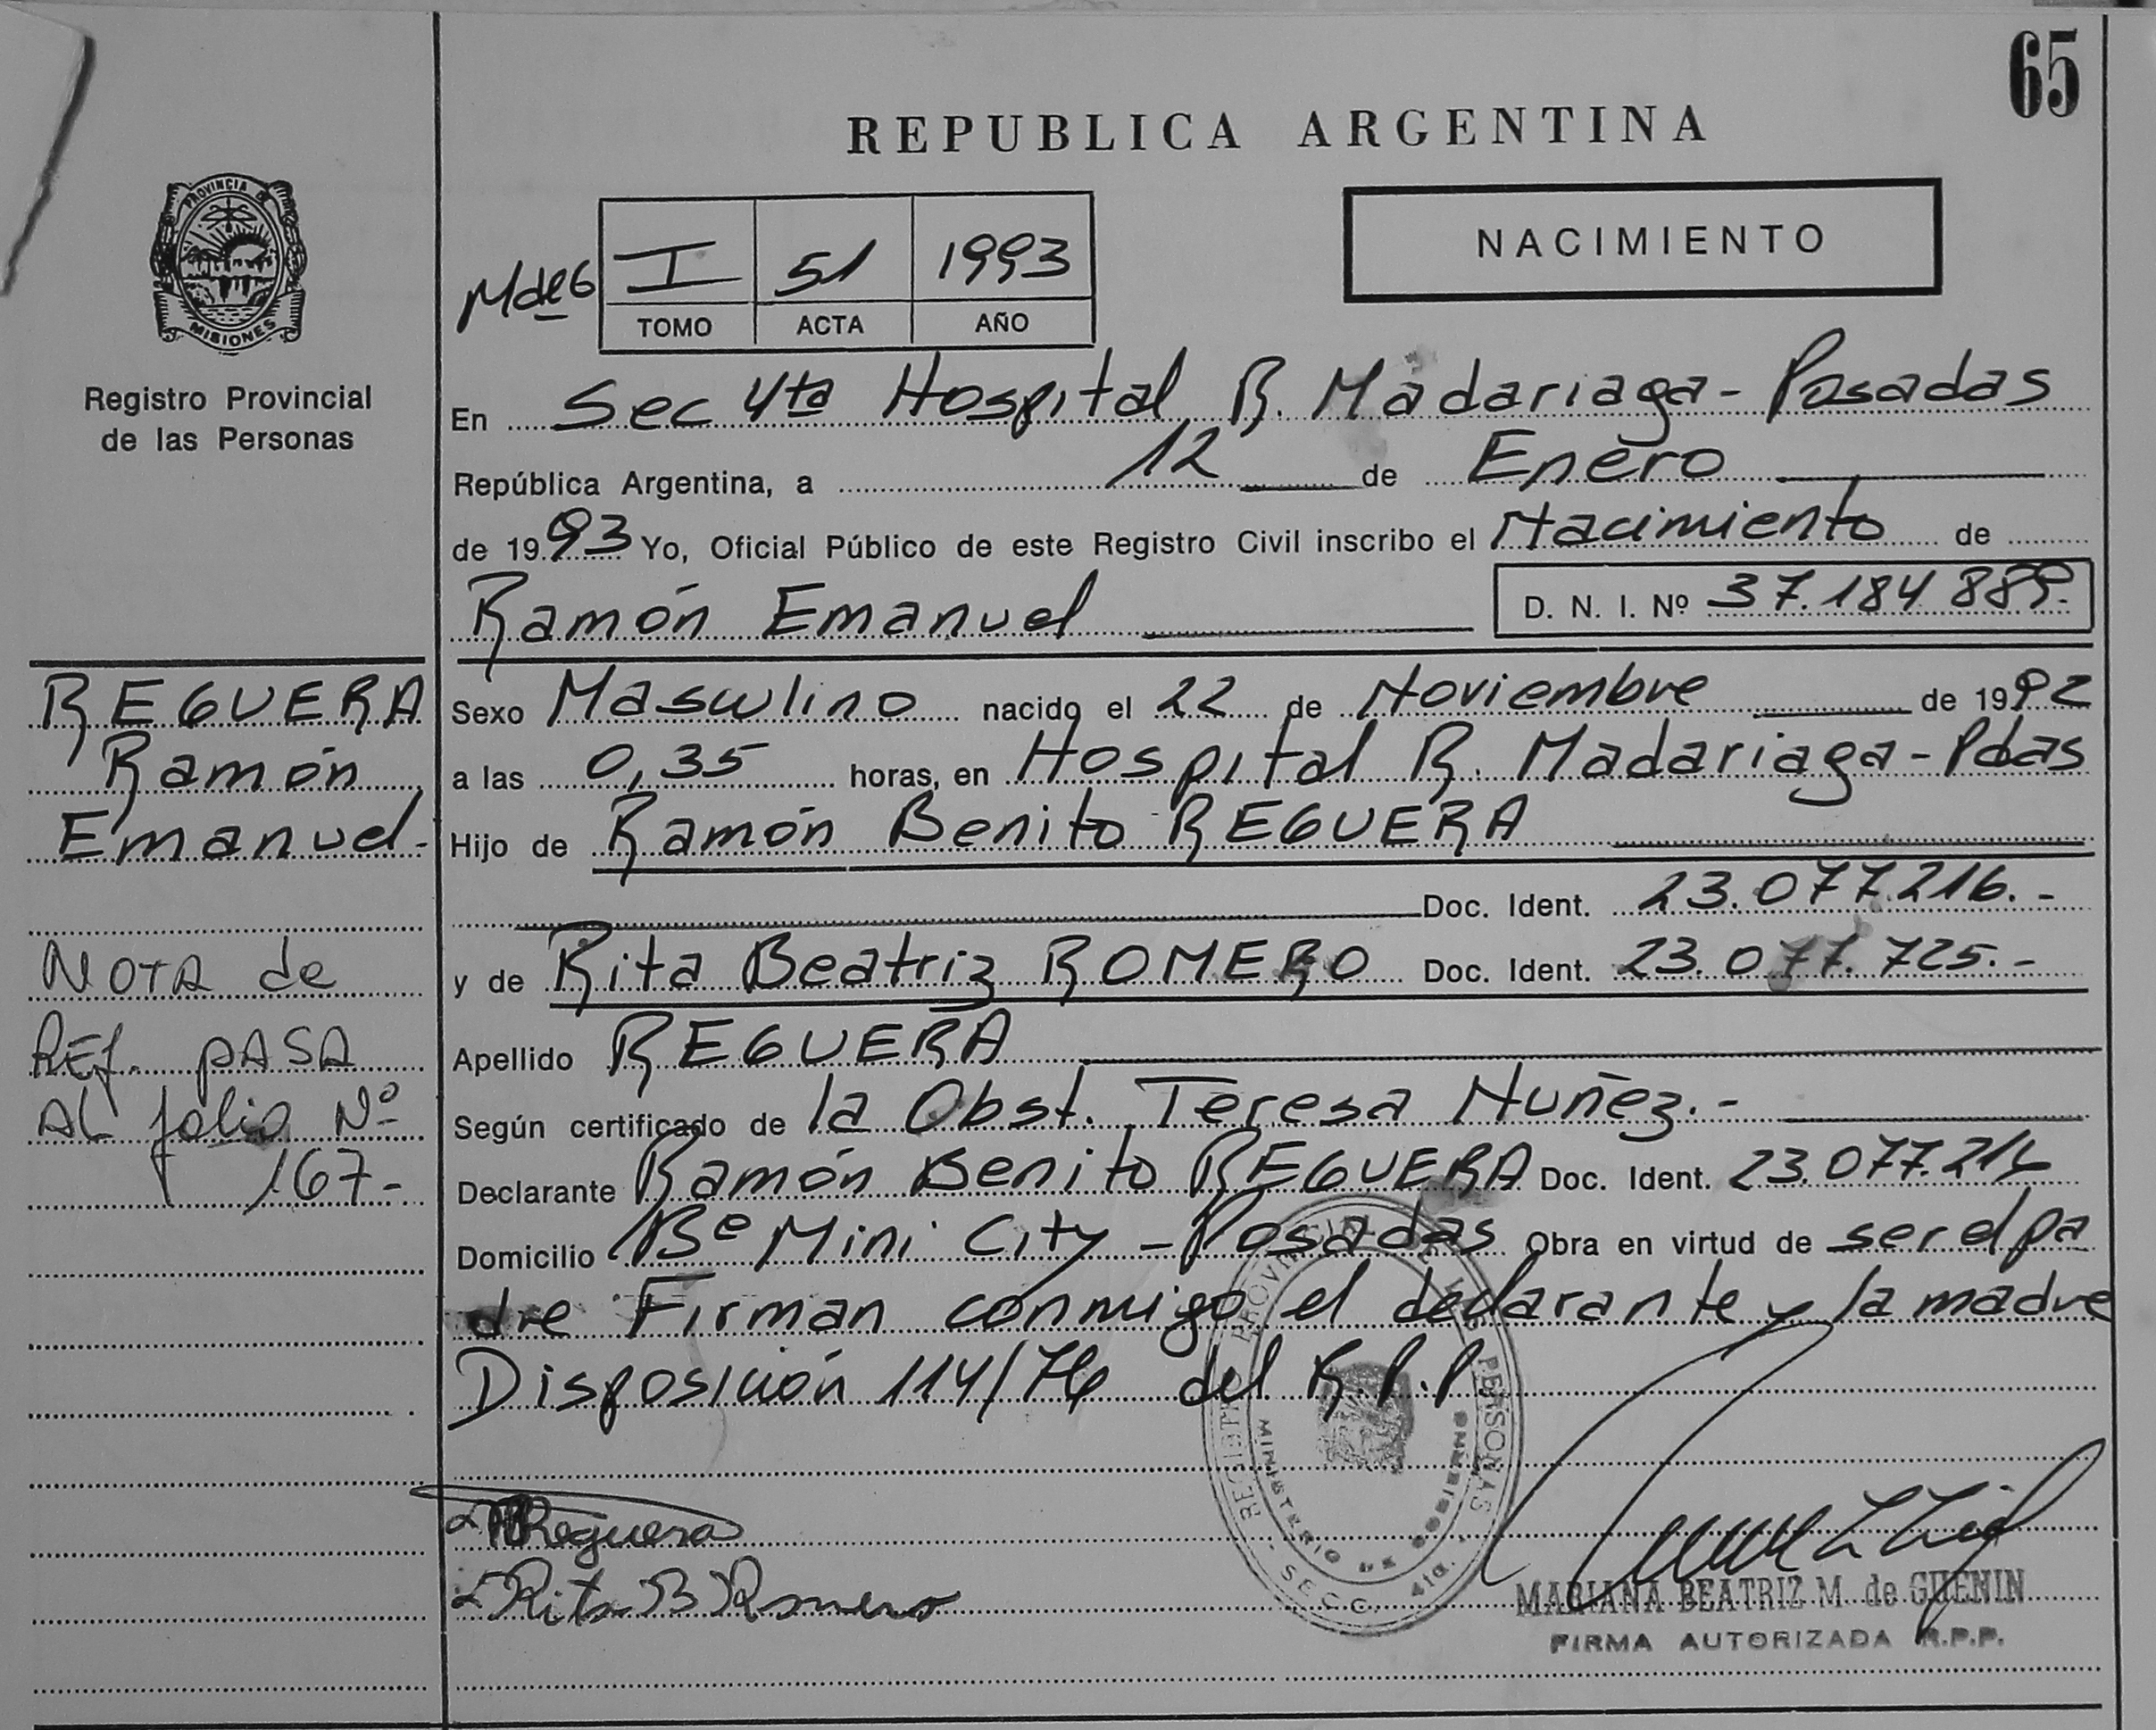 65
REPUBLICA ARGENTINA
PROVINCIA DE
MISIONES
Registro Provincial
de las Personas
NACIMIENTO
MdeG
I 51 1993
TOMO ACTA AÑO
En Sec 4ta Hospital R. Madariaga - Posadas
República Argentina, a 12 de Enero
de 1993 Yo, Oficial Público de este Registro Civil inscribo el Nacimiento de
Ramón Emanuel D. N. I. Nº 37.184.889.-
REGUERA
Ramón
Emanuel-
NOTA de
REf. pASA
AL folio Nº
167-
Sexo Masculino nacido el 22 de Noviembre de 1992
a las 0,35 horas, en Hospital R. Madariaga - Pdas
Hijo de Ramón Benito REGUERA
Doc. Ident. 23.077.216.-
y de Rita Beatriz ROMERO Doc. Ident. 23.077.725.-
Apellido REGUERA
Según certificado de la Obst. Teresa Nuñez.-
Declarante Ramón Benito REGUERA Doc. Ident. 23.077.216
Domicilio Bº Mini City - Posadas Obra en virtud de ser el pa
dre Firman conmigo el declarante y la madre
Disposición 114/76 del R.P.P.
REGISTRO PROVINCIAL DE LAS PERSONAS
MINISTERIO DE GOBIERNO
SECC. 4ta.
Reguera
Rita B Romero
MARIANA BEATRIZ M. de GUENIN
FIRMA AUTORIZADA R.P.P.